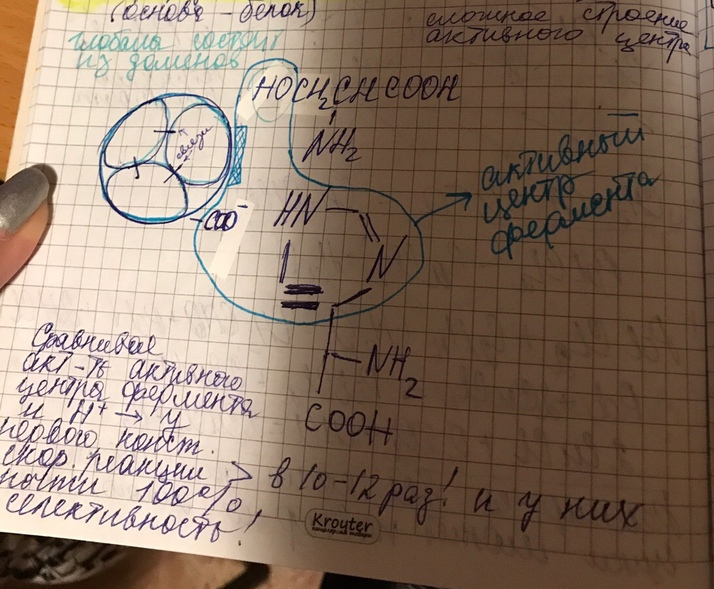 (основа - белок)
глобала состоит
из доменов
сложное строение
активного центра
HOCH2CHCOOH
NH2
связи
-COO-
HN
N
активный
центр
фермента
NH2
COOH
Сравнивая
акт-ть активного
центра фермента
и H+ → у
первого конст.
скор. реакции > в 10-12 раз! и у них
почти 100%
селективность!
Kroyter